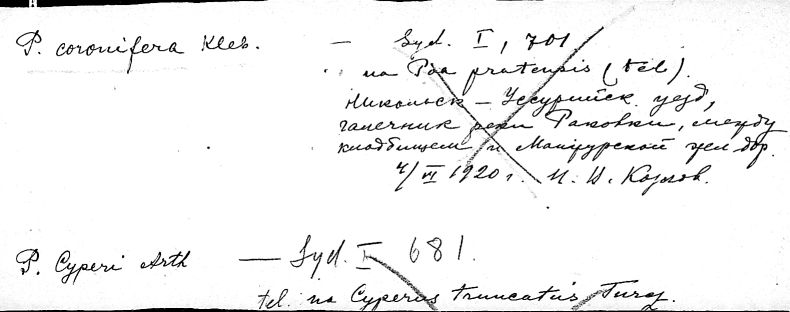 P. coronifera Kleb. — Syd. I, 701
на Poa pratensis (tel).
Никольск-Уссурийск. уезд,
галечник реки Раковки, между
кладбищем и Манчжурской жел. дор.
4/VI 1920 г. И. Н. Козлов.
P. Cyperi Arth — Syd. I 681.
tel. на Cyperus truncatus Turcz.